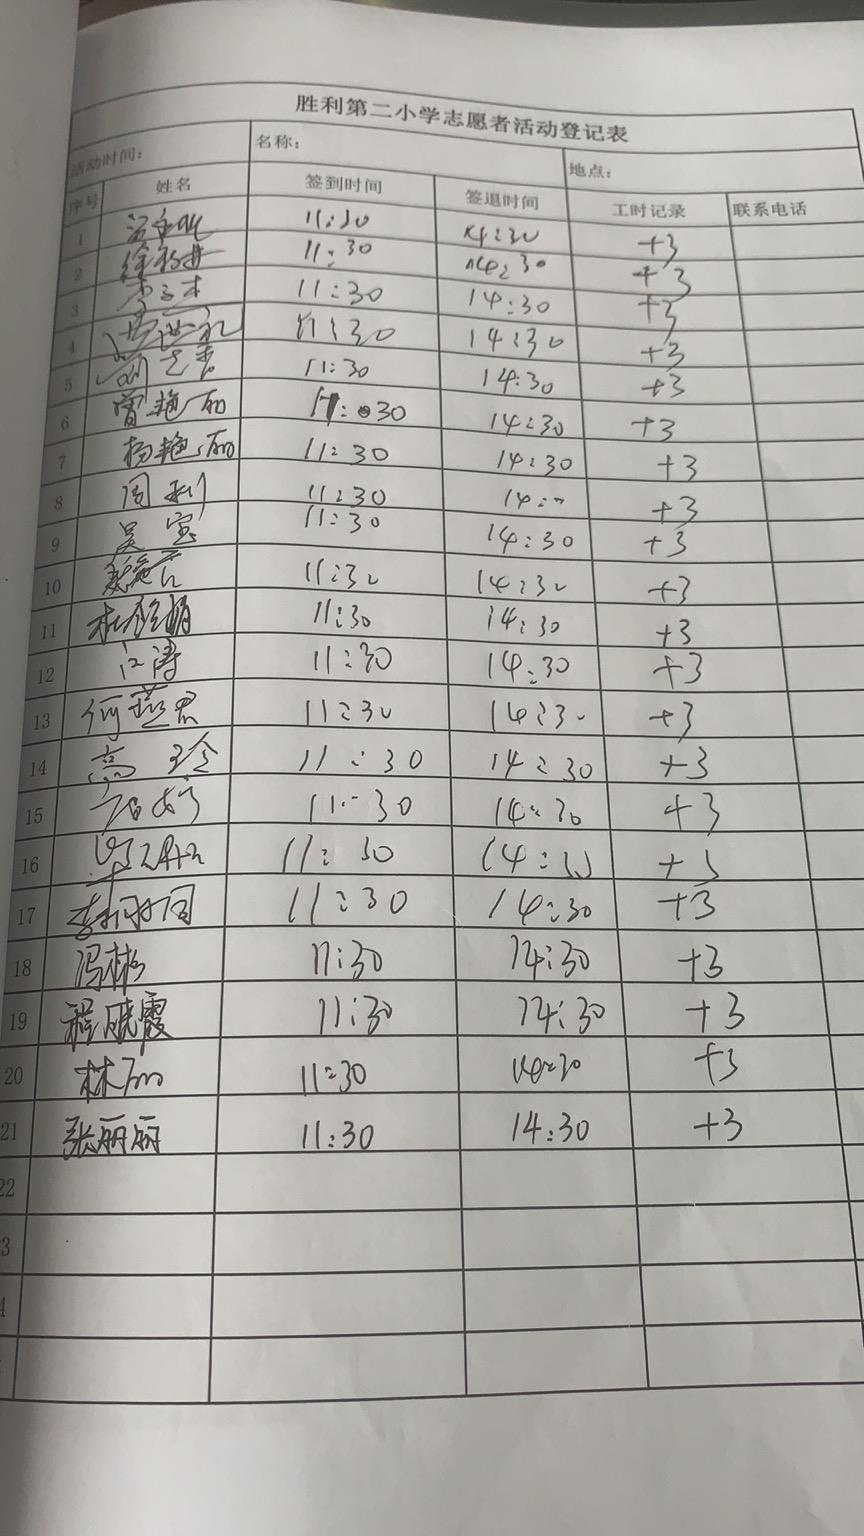 胜利第二小学志愿者活动登记表
活动时间： 名称： 地点：
序号 姓名 签到时间 签退时间 工时记录 联系电话
1 11:30 14:30 +3
2 11:30 14:30 +3
3 11:30 14:30 +3
4 11:30 14:30 +3
5 11:30 14:30 +3
6 曾艳丽 11:30 14:30 +3
7 杨艳丽 11:30 14:30 +3
8 周利 11:30 14: +3
9 吴宝 11:30 14:30 +3
10 11:30 14:30 +3
11 11:30 14:30 +3
12 江涛 11:30 14:30 +3
13 何燕君 11:30 14:30 +3
14 高珍 11:30 14:30 +3
15 11:30 14:30 +3
16 11:30 14:30 +3
17 11:30 14:30 +3
18 冯彬 11:30 14:30 +3
19 程晓霞 11:30 14:30 +3
20 林丽 11:30 14:30 +3
21 张丽丽 11:30 14:30 +3
22
3
4